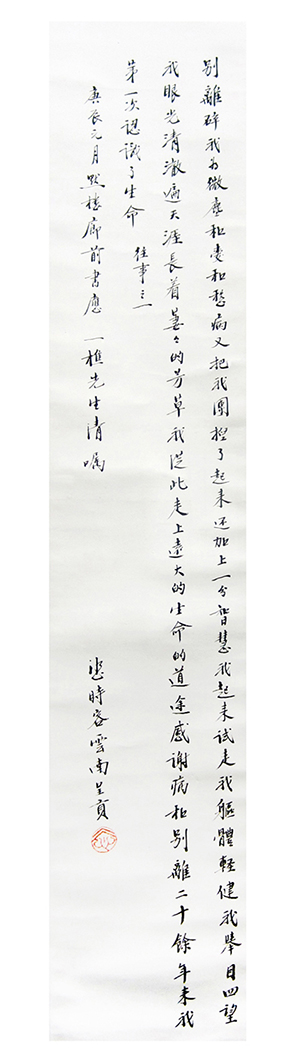 別離碎我為微塵和愛和愁病又把我團揑了起來還加上一分智慧我起來試走我軀體輕健我舉目四望
我眼光清澈遍天涯長着萋萋的芳草我從此走上遠大的生命的道途感謝病和別離二十餘年來我
第一次認識了生命 往事三一
庚辰元月默樓廊前書應 一樵先生清囑
時客雲南呈貢